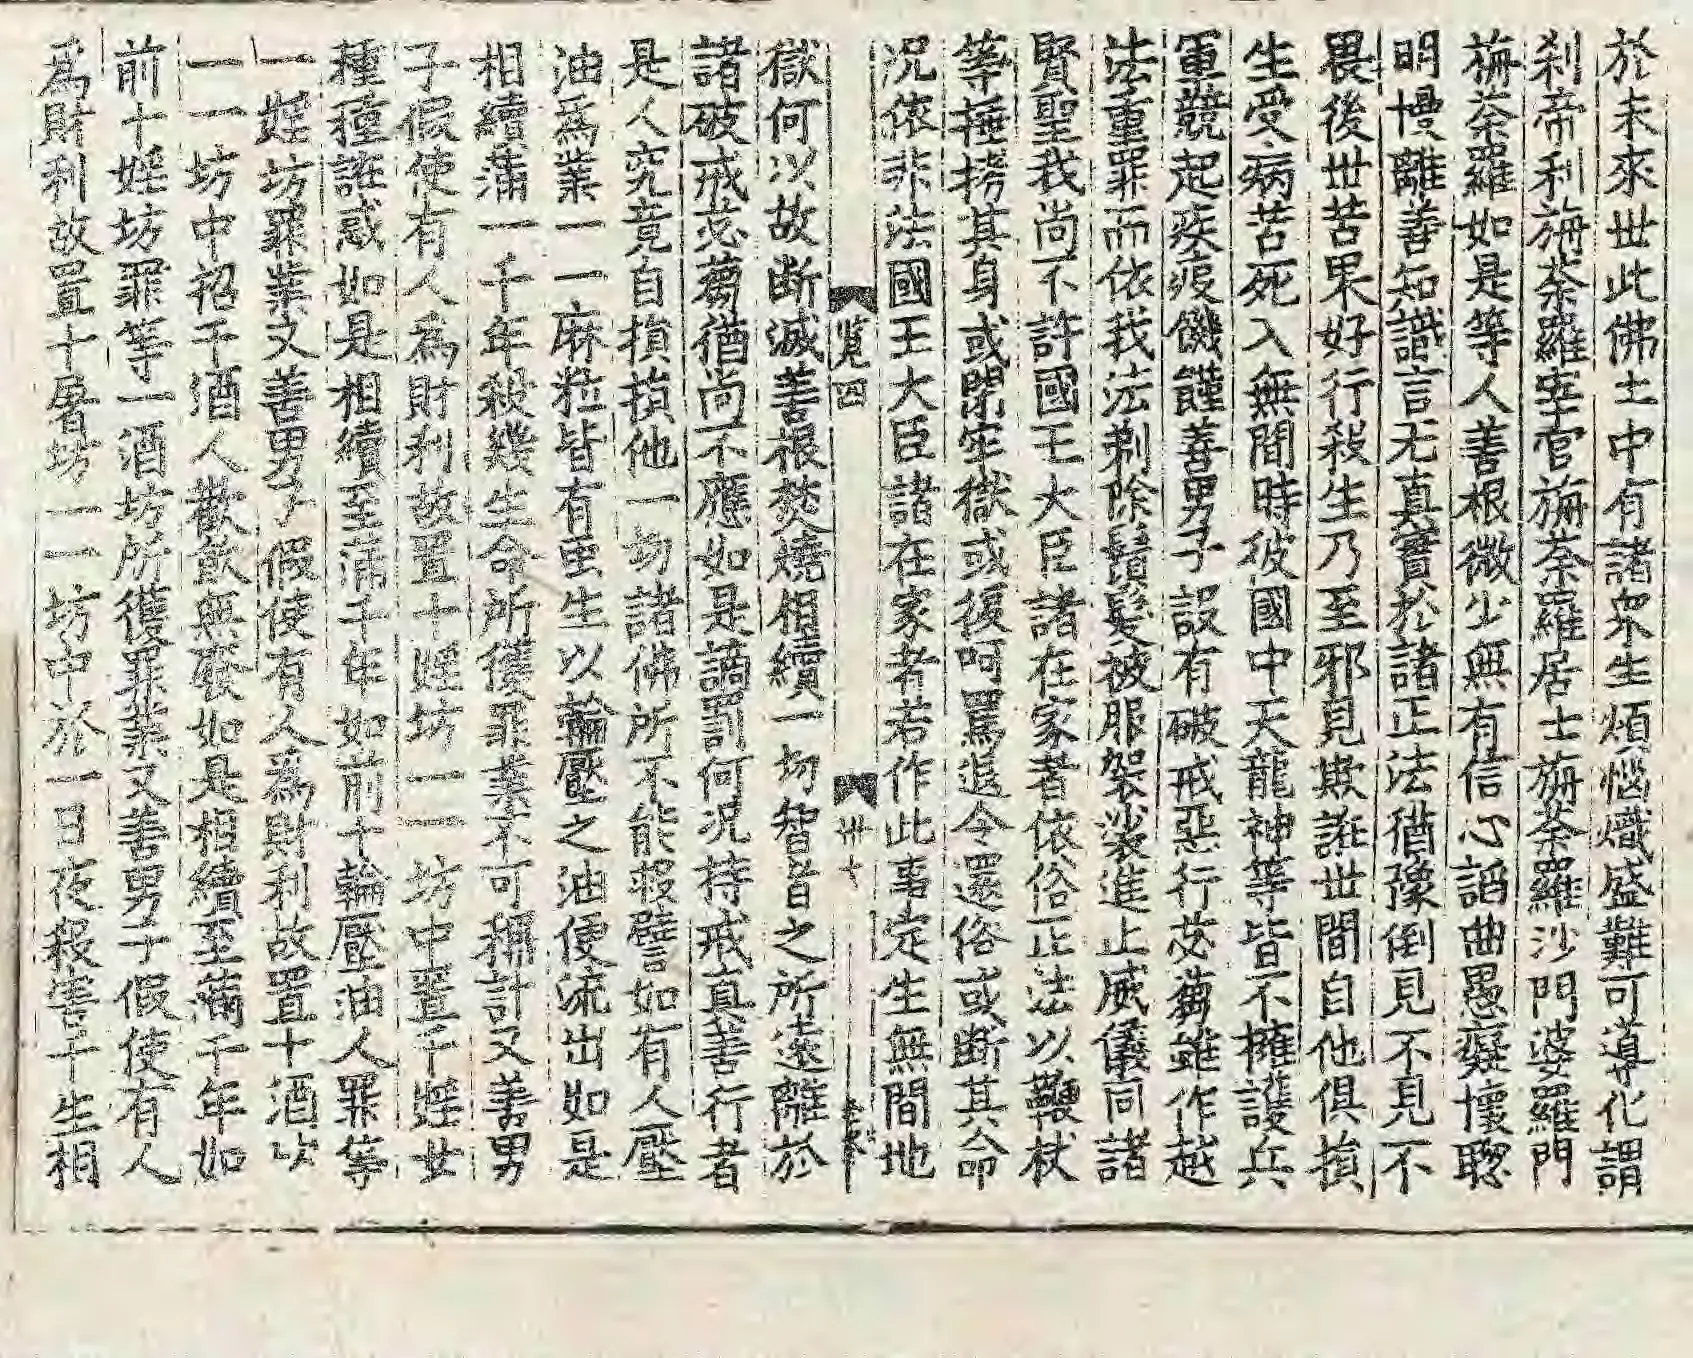 於未來世此佛土中有諸衆生煩惱熾盛難可導化謂
刹帝利旃荼羅宰官旃荼羅居士旃荼羅沙門婆羅門
旃荼羅如是等人善根微少無有信心諂曲愚癡懷聦
明慢離善知識言无真實於諸正法猶豫倒見不見不
畏後世苦果好行殺生乃至邪見欺誑世間自他俱損
生受病苦死入無間時彼國中天龍神等皆不擁護兵
軍競起疾疫饑饉善男子設有破戒惡行苾蒭雖作越
法重罪而依我法剃除鬚髮被服袈裟進止威儀同諸
賢聖我尚不許國王大臣諸在家者依俗正法以鞭杖
等捶拷其身或閉牢獄或復呵罵退令還俗或斷其命
况依非法國王大臣諸在家者若作此事定生無間地
覽四 卅七
獄何以故斷滅善根焚燒相續一切智者之所遠離於
諸破戒苾蒭猶尚不應如是謫罰何况持戒真善行者
是人究竟自損損他一切諸佛所不能救譬如有人壓
油爲業一一麻粒皆有蟲生以輪壓之油便流出如是
相續滿一千年殺幾生命所獲罪業不可稱計又善男
子假使有人爲財利故置十婬坊一一坊中置千婬女
種種誑惑如是相續至滿千年如前十輪壓油人罪等
一婬坊罪業又善男子假使有人爲財利故置十酒坊
一一坊中招千酒人歡飲無廢如是相續至滿千年如
前十婬坊罪等一酒坊所獲罪業又善男子假使有人
爲財利故置十屠坊一一坊中於一日夜殺害千生相